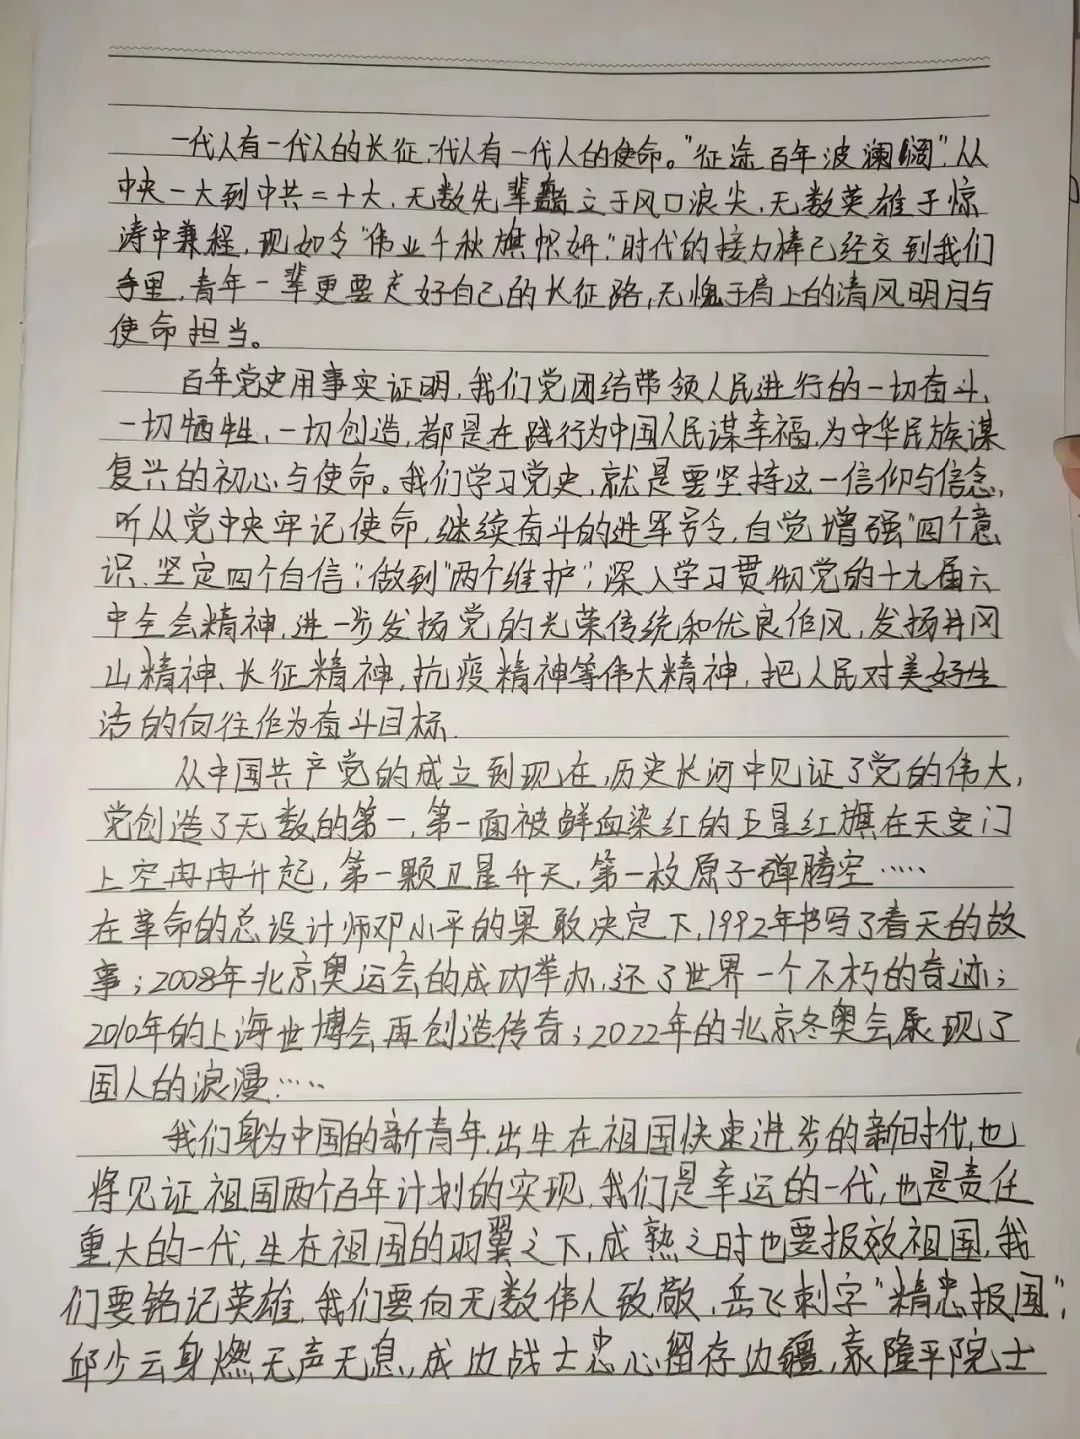 一代人有一代人的长征,一代人有一代人的使命。"征途百年波澜阔",从
中央一大到中共二十大,无数先辈矗立于风口浪尖,无数英雄于惊
涛中兼程,现如今"伟业千秋旗帜妍",时代的接力棒已经交到我们
手里,青年一辈更要走好自己的长征路,无愧于肩上的清风明月与
使命担当。
百年党史用事实证明,我们党团结带领人民进行的一切奋斗、
一切牺牲、一切创造,都是在践行为中国人民谋幸福,为中华民族谋
复兴的初心与使命。我们学习党史,就是要坚持这一信仰与信念,
听从党中央牢记使命,继续奋斗的进军号令,自觉增强"四个意
识、坚定四个自信",做到"两个维护",深入学习贯彻党的十九届六
中全会精神,进一步发扬党的光荣传统和优良作风,发扬井冈
山精神、长征精神,抗疫精神等伟大精神,把人民对美好生
活的向往作为奋斗目标.
从中国共产党的成立到现在,历史长河中见证了党的伟大,
党创造了无数的第一,第一面被鲜血染红的五星红旗在天安门
上空冉冉升起,第一颗卫星升天,第一枚原子弹腾空……
在革命的总设计师邓小平的果敢决定下,1992年书写了春天的故
事;2008年北京奥运会的成功举办,还了世界一个不朽的奇迹;
2010年的上海世博会,再创造传奇;2022年的北京冬奥会展现了
国人的浪漫……
我们身为中国的新青年,出生在祖国快速进步的新时代,也
将见证祖国两个百年计划的实现,我们是幸运的一代,也是责任
重大的一代,生在祖国的羽翼之下,成熟之时也要报效祖国,我
们要铭记英雄,我们要向无数伟人致敬,岳飞刺字"精忠报国",
邱少云身燃无声无息,戍边战士忠心留存边疆,袁隆平院士